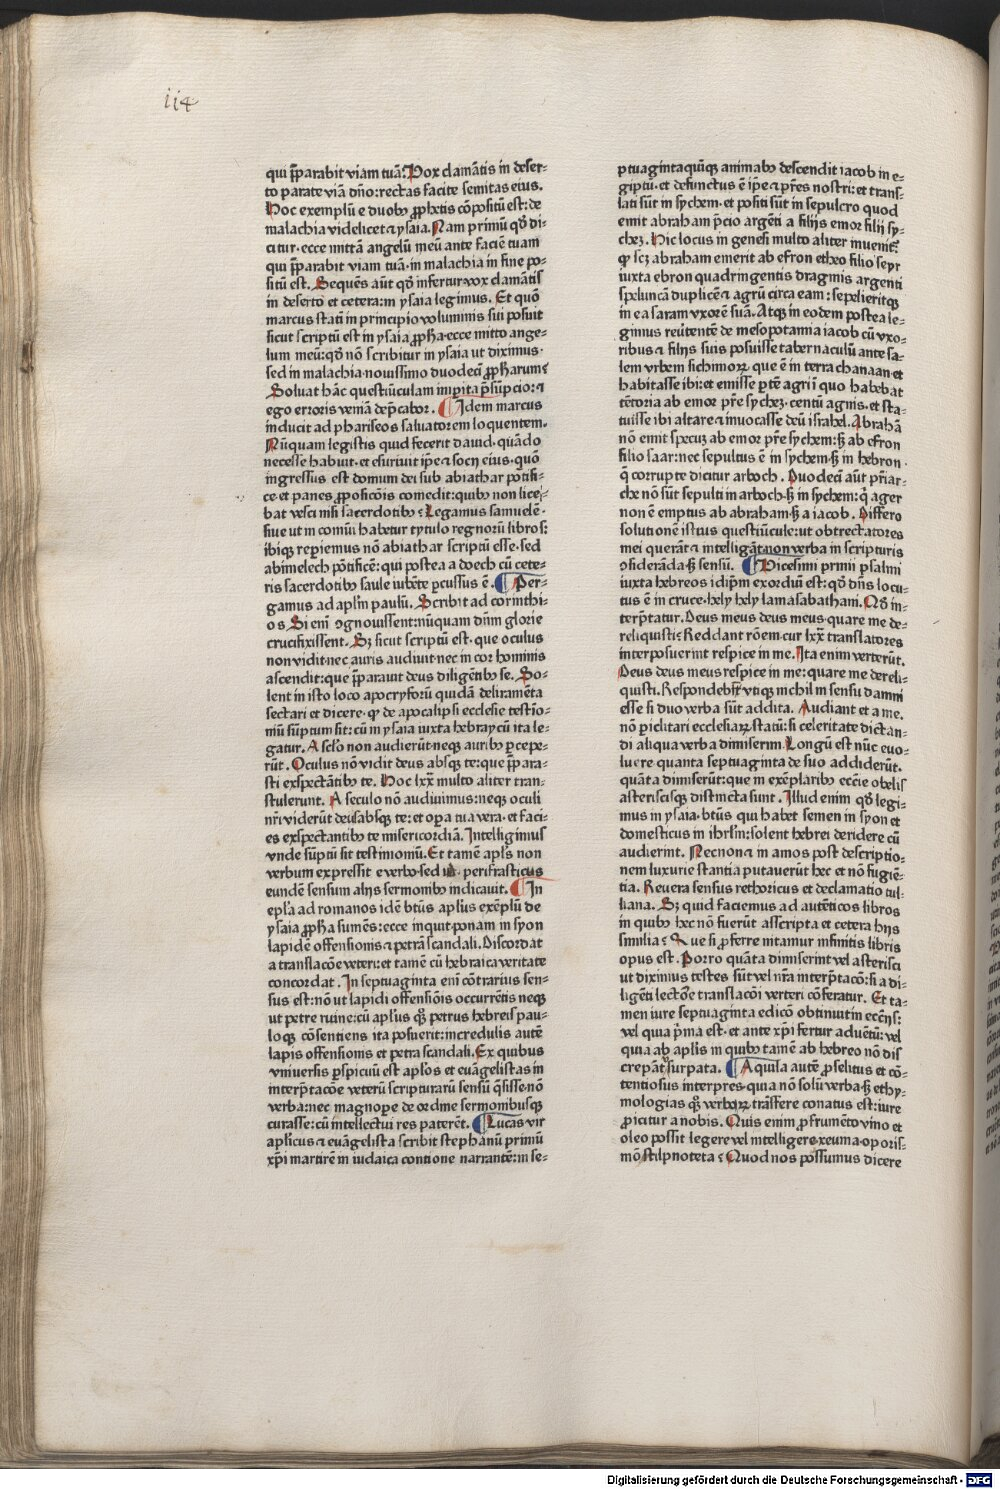 114
qui p̄parabit viam tuā. Vox clamātis in deser⸗
to parate viā dn̄o: rectas facite semitas eius.
Hoc exemplū e duobꝰ ꝓphetis cōpositū est: de
malachia videlicet ⁊ ysaia. Nam primū qd̓ di⸗
citur. ecce mittā angelū meū ante faciē tuam
qui p̄parabit viam tuā. in malachia in fine po⸗
situ est. Sequēs aūt qd̓ infertur vox clamātis
in deserto et cetera: in ysaia legimus. Et quō
marcus statī in principio voluminis sui posuit
sicut scriptū est in ysaia ꝓpha. ecce mitto ange⸗
lum meū: qd̓ nō scribitur in ysaia ut diximus.
sed in malachia. nouissimo duodecī ꝓpharum:
Soluat hāc questiūculam impita p̄sūpcio: ⁊
ego erroris veniā dep̄cabor. Idem marcus
inducit ad phariseos saluatorem loquentem.
Nūquam legistis quid fecerit dauid. quādo
necesse habuit. et esuriuit ip̄e ⁊ socij eius. quō
ingressus est domum dei sub abiathar pōtifi⸗
ce. et panes ꝓposicōis comedit: quibꝰ non lice⸗
bat vesci nisi sacerdotibꝰ: Legamus samuelē.
siue ut in comūi habetur tytulo regnorū libros:
ibiqꝫ reꝑiemus nō abiathar scriptū esse. sed
abimelech pōtificē: qui postea a doech cū cete⸗
ris sacerdotibꝰ saule iubēte ꝑcussus ē. Per⸗
gamus ad apl̄m paulū. Scribit ad corinthi⸗
os. Si enī ꝯgnouissent: nūquam dn̄m glorie
crucifixissent. Sꝫ sicut scriptū est. que oculus
non vidit. nec auris audiuit. nec in cor hominis
ascendit: que p̄parauit deus diligētibꝰ se. So⸗
lent in isto loco apocryforū quidā deliramēta
sectari et dicere. ꝙ de apocalipsi ecclesie testīo⸗
niū sūptum sit: cū in ysaia iuxta hebraycū ita le⸗
gatur. A sclo non audierūt neqꝫ auribꝰ ꝑcepe⸗
rūt. Oculus nō vidit deus absqꝫ te: que p̄para⸗
sti exspectātibꝰ te. Hoc lxx multo aliter tran⸗
stulerunt. A seculo nō audiuimus: neqꝫ oculi
nr̄i viderūt deū absqꝫ te: et oꝑa tua vera. et faci⸗
es exspectantibꝰ te misericordiā. Intelligimus
vnde sūptū sit testimoniū. Et tamē apl̄s non
verbum expressit e verbo. sed perifrasticus
eundē sensum alijs sermonibꝰ indicauit. In
epl̄a ad romanos idē btūs apl̄us exēplū de
ysaia ꝓpha sumēs: ecce inquit ponam in syon
lapidē offensionis ⁊ petrā scandali. Discordat
a translacōe veteri: et tamē cū hebraica veritate
concordat. In septuaginta enī cōtrarius sen⸗
sus est: nō ut lapidi offensiōis occurrētis neqꝫ
ut petre ruine: cū apl̄us qꝫ petrus hebreis pau⸗
loqꝫ cōsentiens ita posuerit: incredulis autē
lapis offensionis et petra scandali. Ex quibus
vniuersis ꝑspicuū est apl̄os et euāgelistas in
interp̄tacōe veterū scripturarū sensū q̄sisse. nō
verba: nec magnoꝑe de ordine sermonibusqꝫ
curasse: cū intellectui res paterēt. Lucas vir
apl̄icus ⁊ euāgelista scribit stephanū primū
xp̄i martirē in iudaica contione narrantē: in se⸗
ptuagintaquīqꝫ animabꝰ descendit iacob in e⸗
giptū. et defunctus ē ip̄e ⁊ pr̄es nostri: et trans⸗
lati sūt in sychem. et positi sūt in sepulcro quod
emit abraham p̄cio argēti a filijs emor filij sy⸗
chez. Hic locus in genesi multo aliter inuenit̄:
ꝙ scꝫ abraham emerit ab efron etheo filio seyr
iuxta ebron quadringentis dragmis argenti
speluncā duplicē ⁊ agrū circa eam: sepelieritqꝫ
in ea saram vxorē suā. Atqꝫ in eodem postea le⸗
gimus reūtentē de mesopotamia iacob cū vxo⸗
ribus ⁊ filijs suis posuisse tabernaculū ante sa⸗
lem vrbem sichimoꝝ que ē in terra chanaan. et
habitasse ibi: et emisse ꝑtē agri ī quo habebat
tētoria ab emor pr̄e sychez. centū agnis. et sta⸗
tuisse ibi altare ⁊ inuocasse deū israhel. Abrahā
nō emit specuꝫ ab emor pr̄e sychem: sꝫ ab efron
filio saar: nec sepultus ē in sychem. sꝫ in hebron.
q̄ corrupte dicitur arboch. Duodecī aūt pr̄iar⸗
che nō sūt sepulti in arboch. sꝫ in sychem: q̄ ager
non ē emptus ab abraham. sꝫ a iacob. Differo
solutionē istius questiūcule: ut obtrectatores
mei querāt ⁊ intelligāt. non verba in scripturis
ꝯsiderāda sꝫ sensū. Vicesimi primi psalmi
iuxta hebreos id ip̄m exordiū est: qd̓ dn̄s locu⸗
tus ē in cruce. hely hely lamasabathani. Qd̓ in⸗
terp̄tatur. Deus meus deus meus. quare me de⸗
reliquisti: Reddant rōem. cur lxx translatores
interposuerint respice in me. Ita enim verterūt.
Deus deus meus respice in me: quare me dereli⸗
quisti. Respondebūt vtiqꝫ nichil in sensu damni
esse si duo verba sūt addita. Audiant et a me.
nō piclitari ecclesiaꝝ statū: si celeritate dictan⸗
di aliqua verba dimiserim. Longū est nūc euo⸗
luere quanta septuaginta de suo addiderūt.
quāta dimiserūt: que in exēplaribꝰ eccīe obelis
asteriscisqꝫ distincta sunt. Illud enim qd̓ legi⸗
mus in ysaia. btūs qui habet semen in syon et
domesticus in ihrl̄m: solent hebrei deridere cū
audierint. Necnon ⁊ in amos post descriptio⸗
nem luxurie stantia putauerūt hec et nō fugiē⸗
tia. Reuera sensus rethoricus et declamatio tul⸗
liana. Sꝫ quid faciemus ad autēticos libros
in quibꝰ hec nō fuerūt asscripta et cetera hijs
similia: Que si ꝓferre nitamur infinitis libris
opus est. Porro quāta dimiserint vel asterisci
ut diximus testes sūt vel nr̄a interp̄tacō: si a di⸗
ligēti lectōe translacōi veteri cōferatur. Et ta⸗
men iure septuaginta edicō obtinuit in eccīis:
vel quia p̄ma est. et ante xp̄i fertur aduētū: vel
quia ab apl̄is in quibꝰ tamē ab hebreo nō dis
crepāt vsurpata. Aquila autē ꝓselitus et cō⸗
tentiosus interpres. quia nō solū verba sꝫ ethy⸗
mologias qꝫ verboꝝ trāsferre conatus est: iure
ꝓicitur a nobis. Quis enim ꝓ frumēto vino et
oleo possit legere vel intelligere. xeuma. oporis⸗
mō stilpnoteta: Quod nos possumus dicere
Digitalisierung gefördert durch die Deutsche Forschungsgemeinschaft - DFG